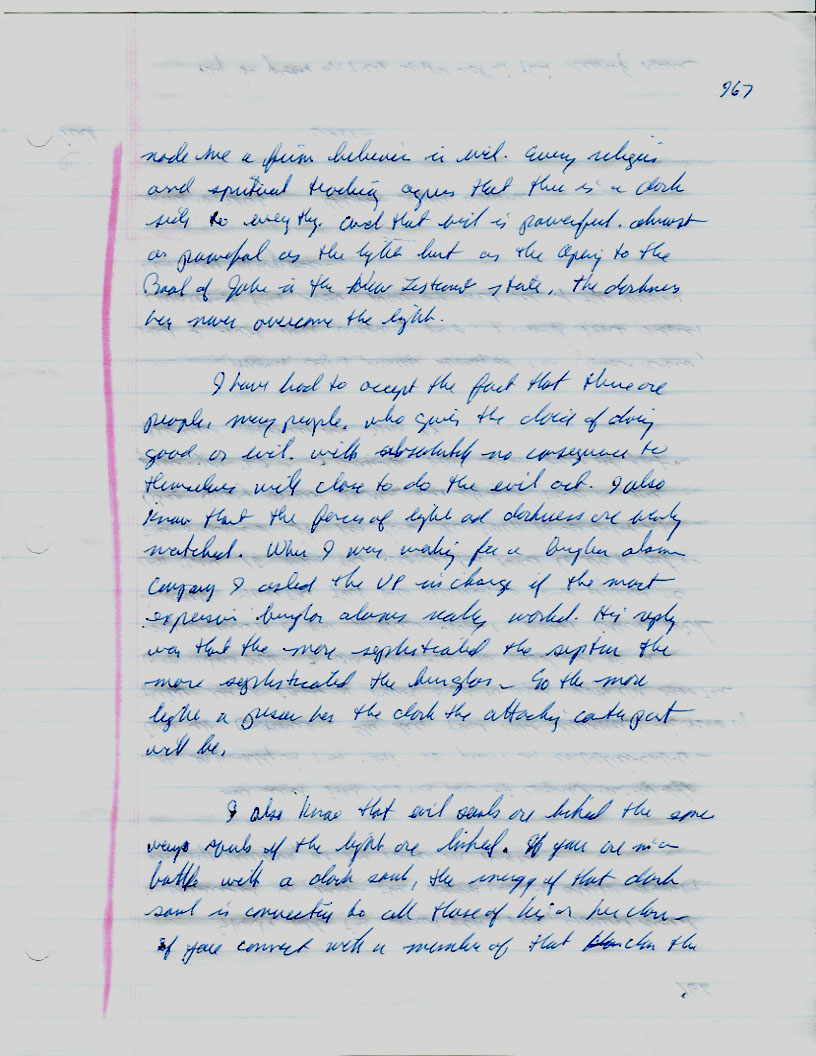 967
made me a firm believer in evil. Every religion
and spiritual teaching agrees that there is a dark
side to everything. and that evil is powerful. almost
as powerful as the light but as the opening to the
Book of John in the New Testament states. The darkness
has never overcome the light.
I have had to accept the fact that there are
people, many people. who given the choice of doing
good or evil. with absolutely no consequence to
themselves will chose to do the evil act. I also
know that the forces of light and darkness are evenly
matched. When I was working for a burglar alarm
company I asked the VP in charge if the most
expensive burglar alarms really worked. His reply
was that the more sophisticated the system the
more sophisticated the burglar – So the more
light a person has the dark the attacking counterpart
will be.
I also know that evil souls are linked the same
ways souls of the light are linked. If you are in a
battle with a dark soul, the energy of that dark
soul is connecting to all those of his or her clan –
If you connect with a member of that clan the